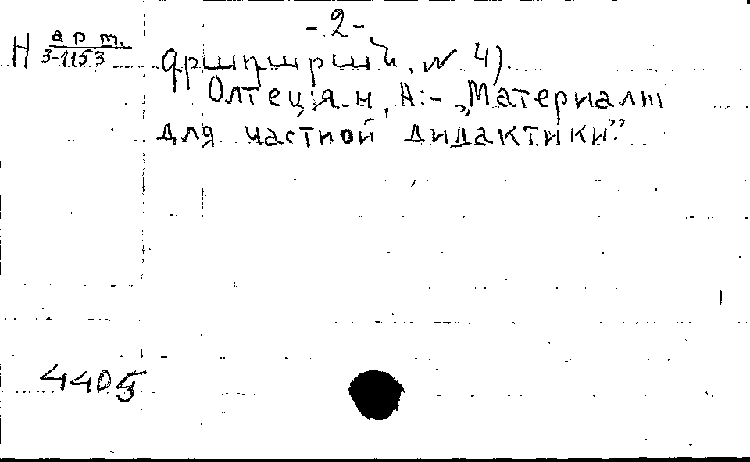 - 2 -
Н арт.
3-1153
գրադարան, № 4).
Олтецян, А:- „Материалы
для частной дидактики”
4405